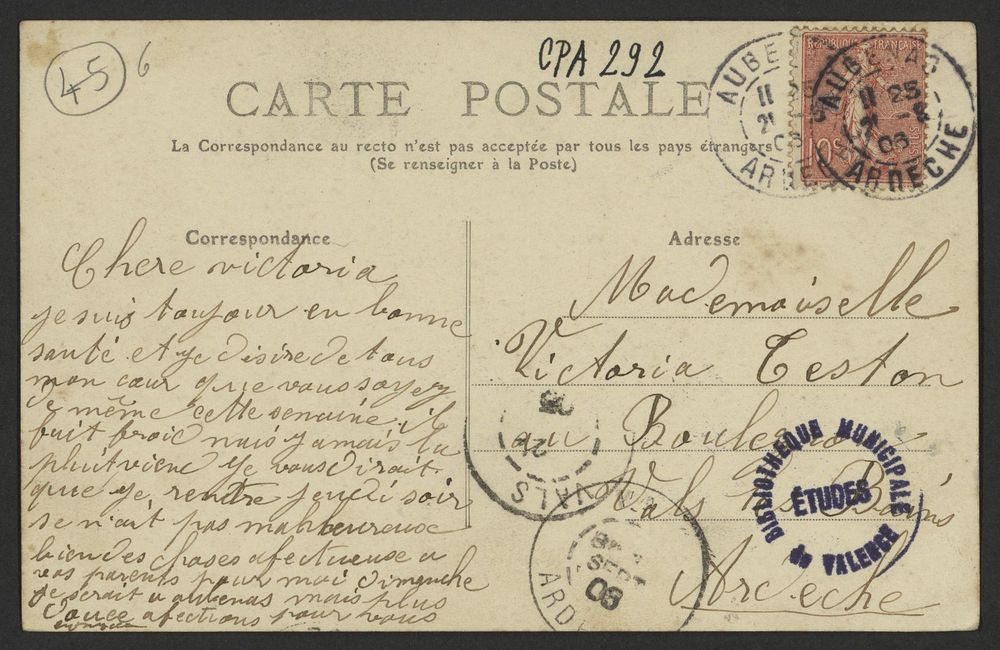 45
6
CPA 292
CARTE POSTALE
La Correspondance au recto n'est pas acceptée par tous les pays étrangers
(Se renseigner à la Poste)
RÉPUBLIQUE FRANÇAISE
10
AUBENAS
11 25
21 -8
06
ARDECHE
Correspondance
Adresse
Chere victoria
je suis toujour en bonne
santé et je désire de tous
mon cœur que vous soyez
de même cette semaine il
fait froid mais jamais la
pluit vien je vous dirait
que je rentre jeudi soir
se n'ait pas malheureux
bien des choses afectueuse a
vos parents pour moi dimanche
je serait a aubenas mais plus
douce afections pour vous
Mademoiselle
Victoria Teston
au Boulevard
Vals les Bains
Ardeche
VALS
21
ARDE
SEPT
06
BIBLIOTHEQUE MUNICIPALE
ÉTUDES
de VALENCE